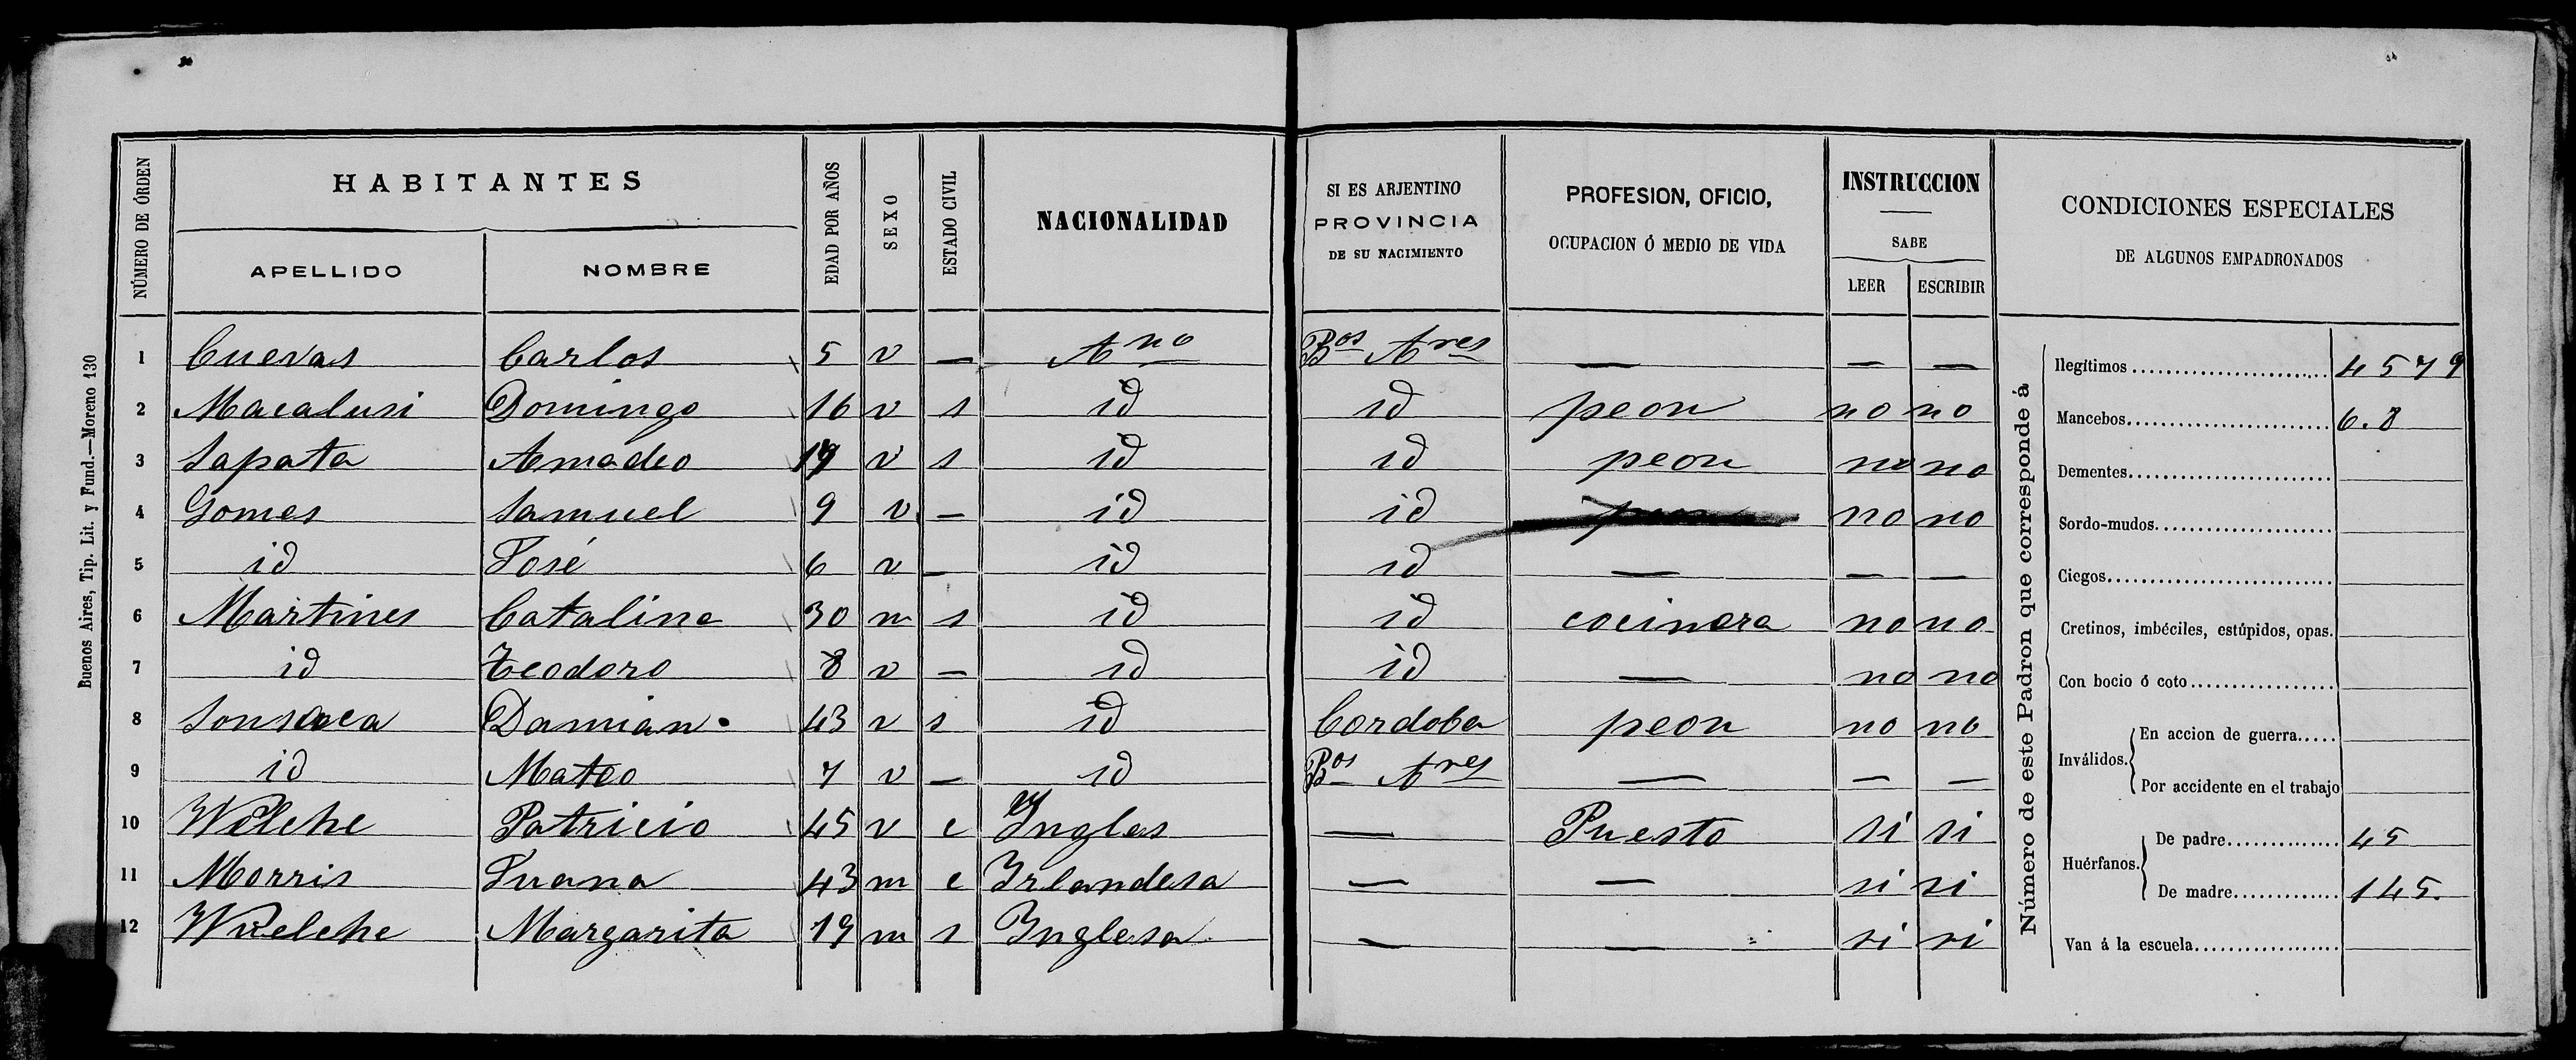 Buenos Aires, Tip. Lit. y Fund.—Moreno 130
NÚMERO DE ÓRDEN
HABITANTES
APELLIDO NOMBRE
EDAD POR AÑOS
SEXO
ESTADO CIVIL
NACIONALIDAD
SI ES ARJENTINO
PROVINCIA
DE SU NACIMIENTO
PROFESION, OFICIO,
OCUPACION Ó MEDIO DE VIDA
INSTRUCCION
SABE
LEER ESCRIBIR
CONDICIONES ESPECIALES
DE ALGUNOS EMPADRONADOS
1 Cuevas Carlos 5 v — Ano Bos Ares — — —
2 Macalusi Domingo 16 v s id id peon no no
3 Sapata Amadeo 19 v s id id peon no no
4 Gomes Samuel 9 v — id id no no
5 id José 6 v — id id — — —
6 Martines Catalina 30 m s id id cocinera no no
7 id Teodoro 8 v — id id — no no
8 Damian 43 v s id Cordoba peon no no
9 id Mateo 7 v — id Bos Ares — — —
10 Welche Patricio 45 v c Ingles — Puesto si si
11 Morris Juana 43 m c Irlandesa — — si si
12 Welche Margarita 19 m s Inglesa — — si si
Número de este Padron que corresponde á
Ilegítimos 4 5 7 9
Mancebos 6.8
Dementes
Sordo-mudos
Ciegos
Cretinos, imbéciles, estúpidos, opas.
Con bocio ó coto
Inválidos. En accion de guerra
Por accidente en el trabajo
Huérfanos. De padre 45
De madre 145.
Van á la escuela